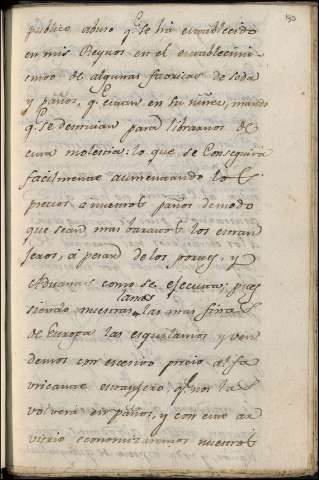 130
publico aburo q.e se ha establecido
en mis Reynos en el establecimi
ento de algunas facricas de seda
y paños, q.e estan en su niñez, mando
q.e se destruian para librarnos de
esta molestia: lo que se conseguirá
facilmente aumentando los
precios á nuestros paños demodo
que sean mas baratos los estran
jeros, á pesar delos portes, y
Aduanas como se ejecuta; pues
siendo nuestras lanas las mas finas
de Europa las esquilamos y ven
demos con excesivo precio al fa
vricante estranjero q.e nos las
volverá en paños, y con este ar
vitrio economizaremos nuestros